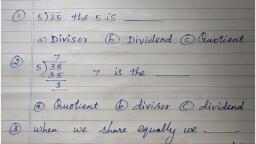 ① 5)25 the 5 is ______
a) Divisor ⓑ Dividend ⓒ Quotient
② 7
5)38 7 is the ______
35
3
ⓐ Quotient ⓑ divisor ⓒ dividend
③ when we share equally we ______